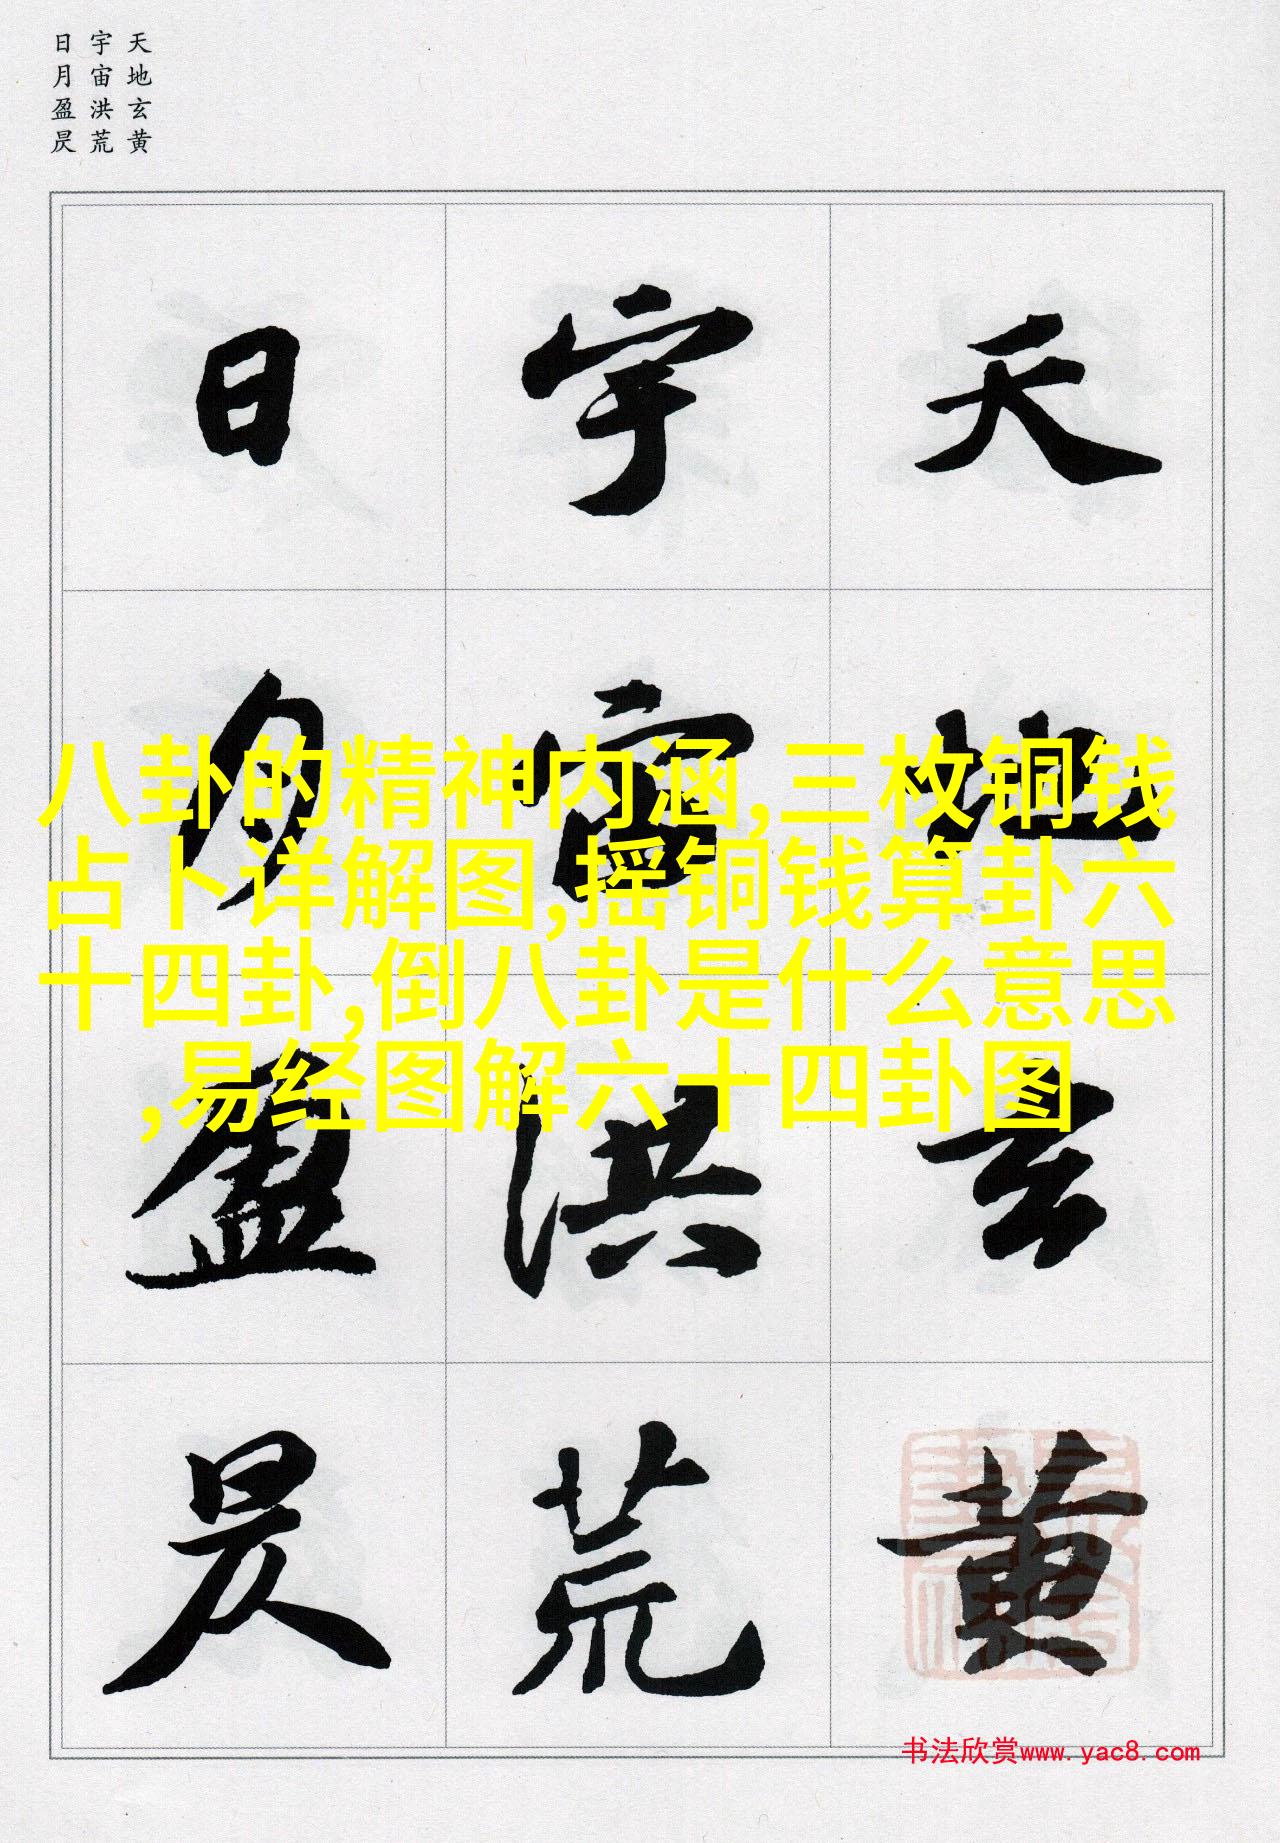 天地玄黄
宇宙洪荒
日月盈昃
天地玄黄
宇宙洪荒
日月盈昃
八卦的精神内涵,三枚铜钱
占卜详解图,摇铜钱算卦六
十四卦,倒八卦是什么意思
,易经图解六十四卦图
书法欣赏www.yac8.com